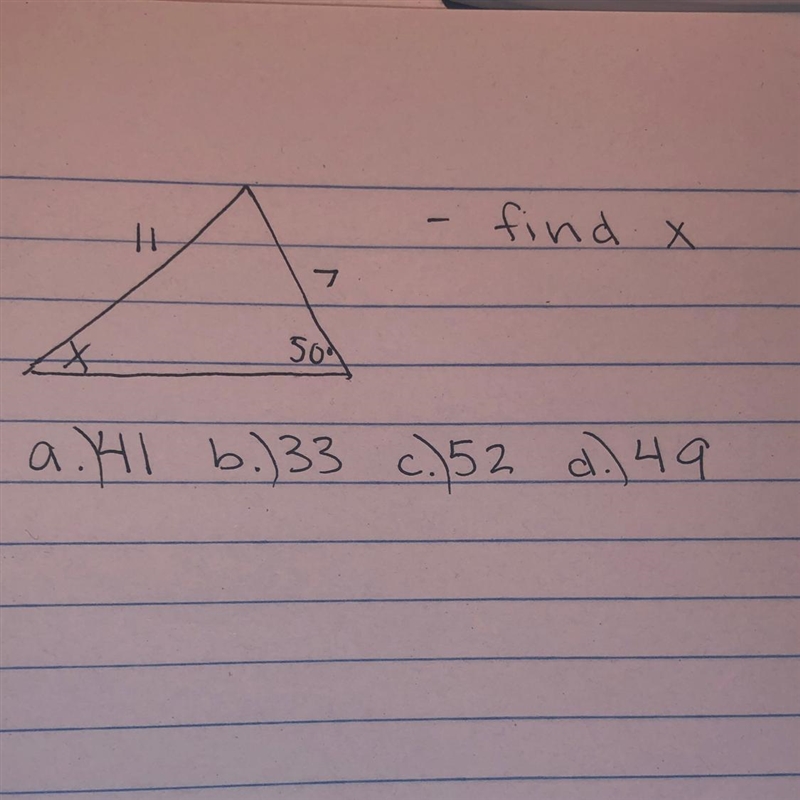 - find x
11
7
x
50°
a.) 41 b.) 33 c.) 52 d.) 49